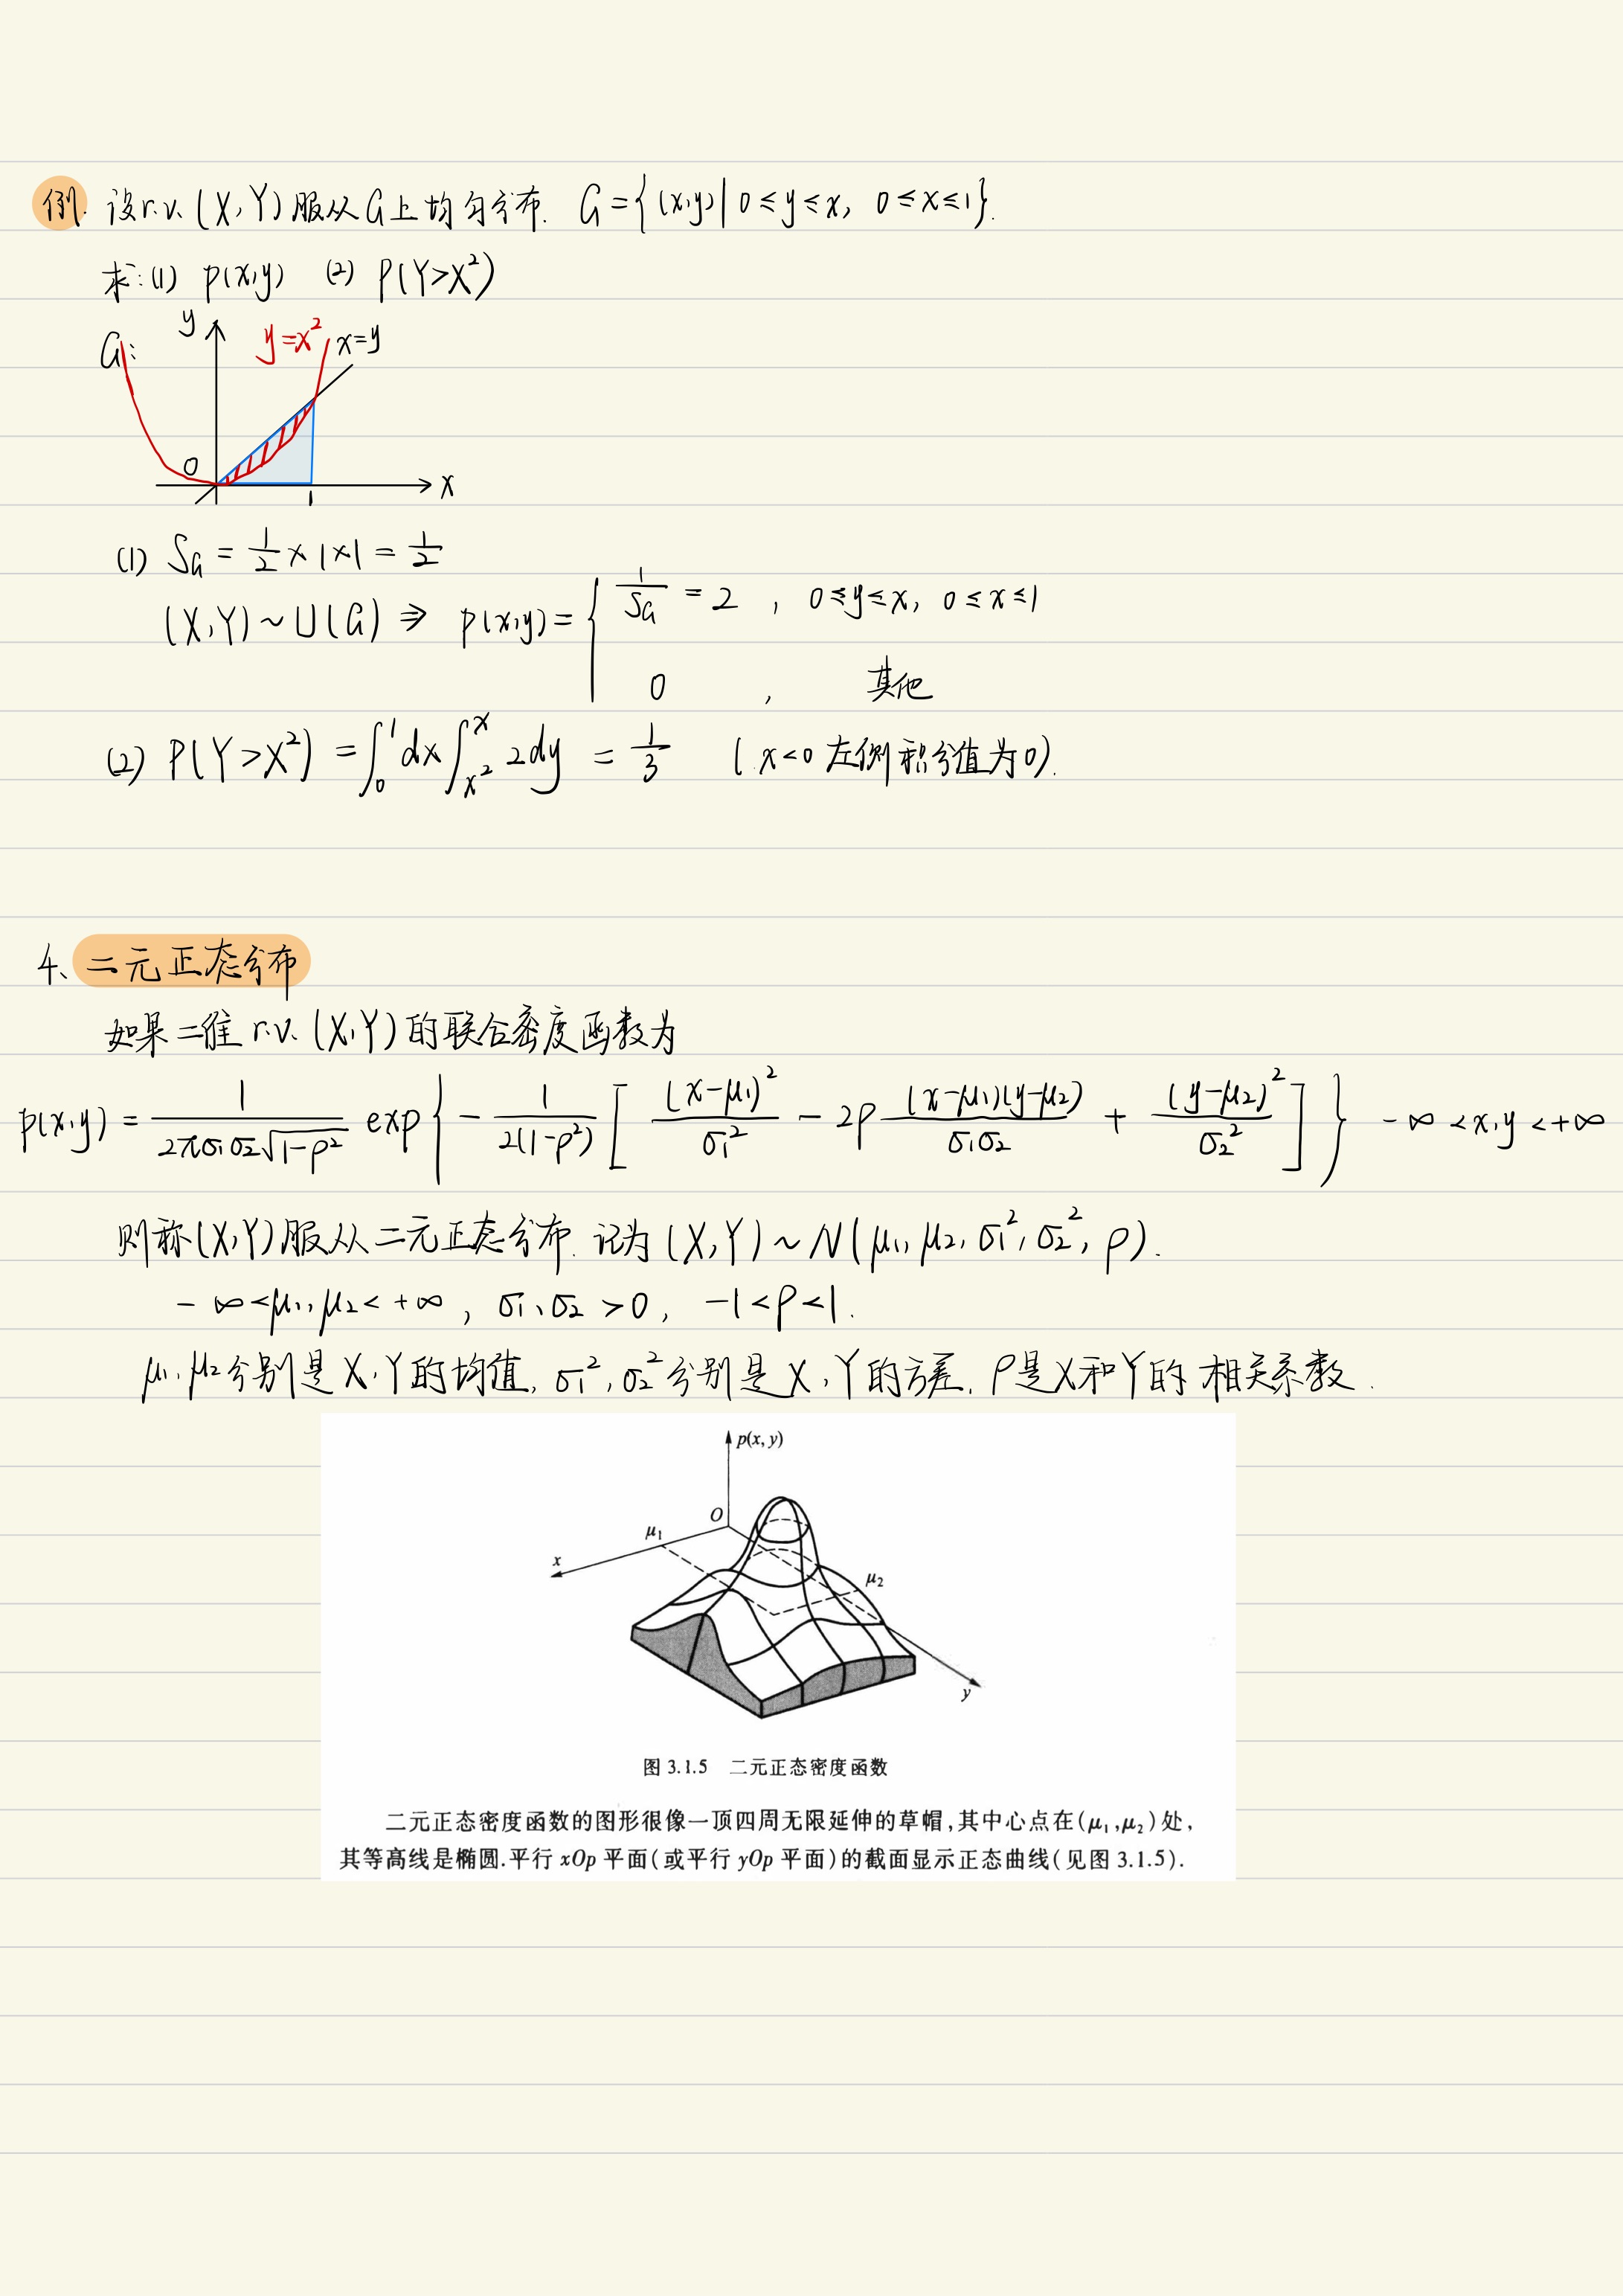 例. 设r.v. (X,Y)服从G上均匀分布. G={(x,y)|0≤y≤x, 0≤x≤1}.
求:(1) p(x,y) (2) P(Y>X²)
G: y y=x² x=y
0 1 x
(1) S_G = 1/2 × 1×1 = 1/2
(X,Y)~U(G) ⇒ p(x,y)= { 1/S_G = 2 , 0≤y≤x, 0≤x≤1
0 , 其他
(2) P(Y>X²) = ∫₀¹dx∫_{x²}^{x} 2dy = 1/3 (x<0 左侧积分值为0).
4、二元正态分布
如果二维 r.v. (X,Y)的联合密度函数为
p(x,y) = 1/(2πσ₁σ₂√(1-ρ²)) exp{ - 1/(2(1-ρ²)) [ (x-μ₁)²/σ₁² - 2ρ (x-μ₁)(y-μ₂)/(σ₁σ₂) + (y-μ₂)²/σ₂² ] } -∞<x,y<+∞
则称(X,Y)服从二元正态分布. 记为 (X,Y)~N(μ₁, μ₂, σ₁², σ₂², ρ).
-∞<μ₁, μ₂<+∞, σ₁、σ₂>0, -1<ρ<1.
μ₁, μ₂分别是X,Y的均值, σ₁², σ₂²分别是X,Y的方差. ρ是X和Y的相关系数.
p(x, y)
O
μ₁
x
μ₂
y
图 3.1.5 二元正态密度函数
二元正态密度函数的图形很像一顶四周无限延伸的草帽,其中心点在(μ₁,μ₂)处,
其等高线是椭圆.平行 xOp 平面(或平行 yOp 平面)的截面显示正态曲线(见图 3.1.5).